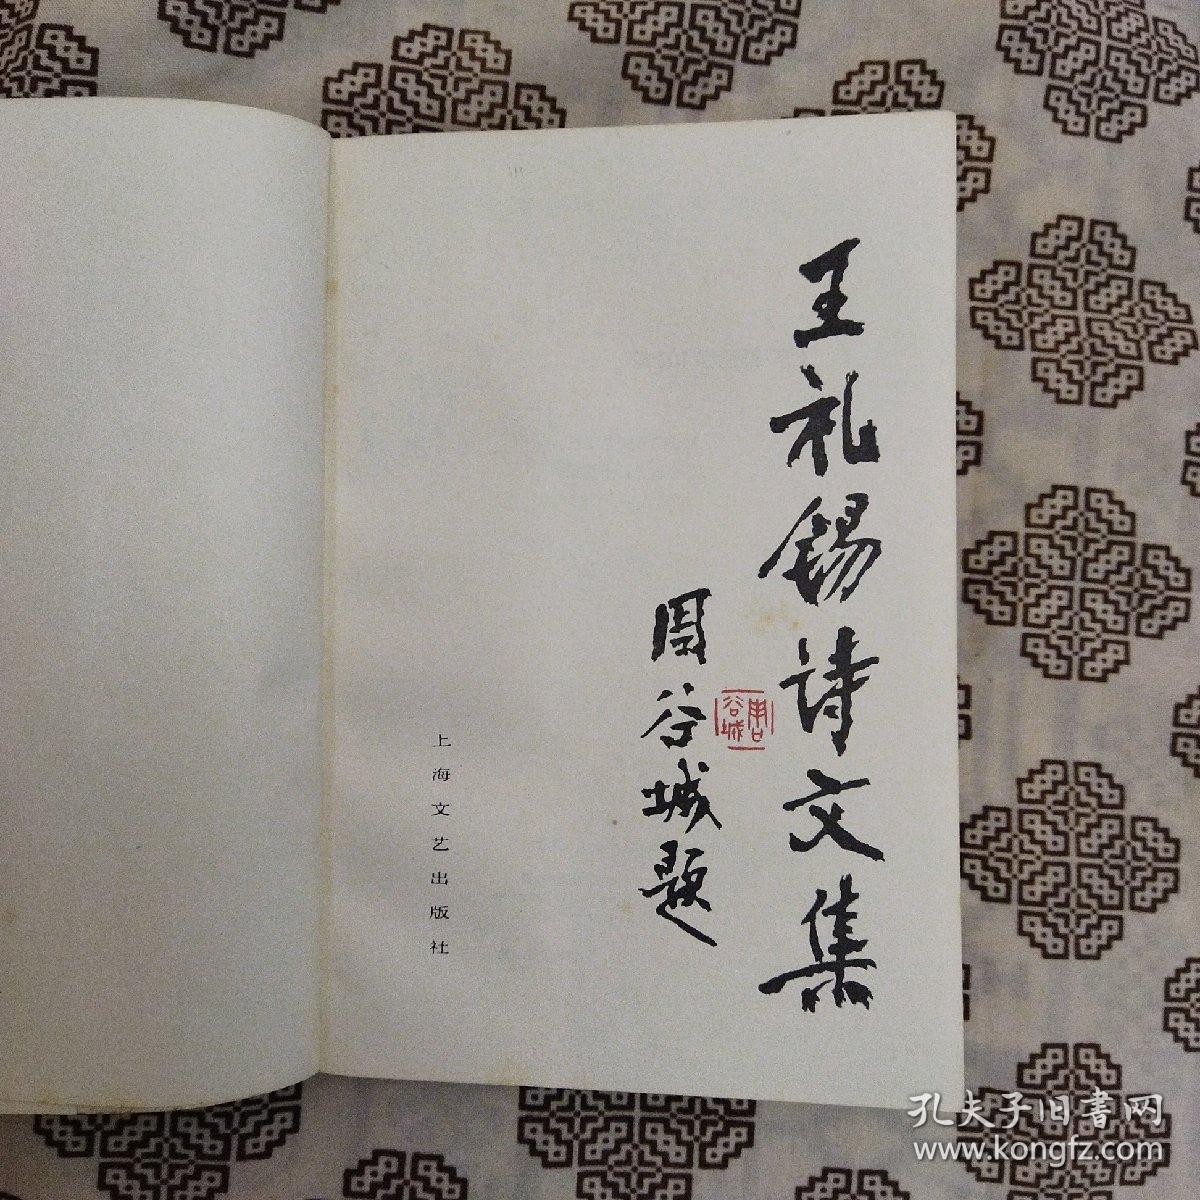 王礼锡诗文集
周谷城题
周谷城
上海文艺出版社
孔夫子旧書网
www.kongfz.com